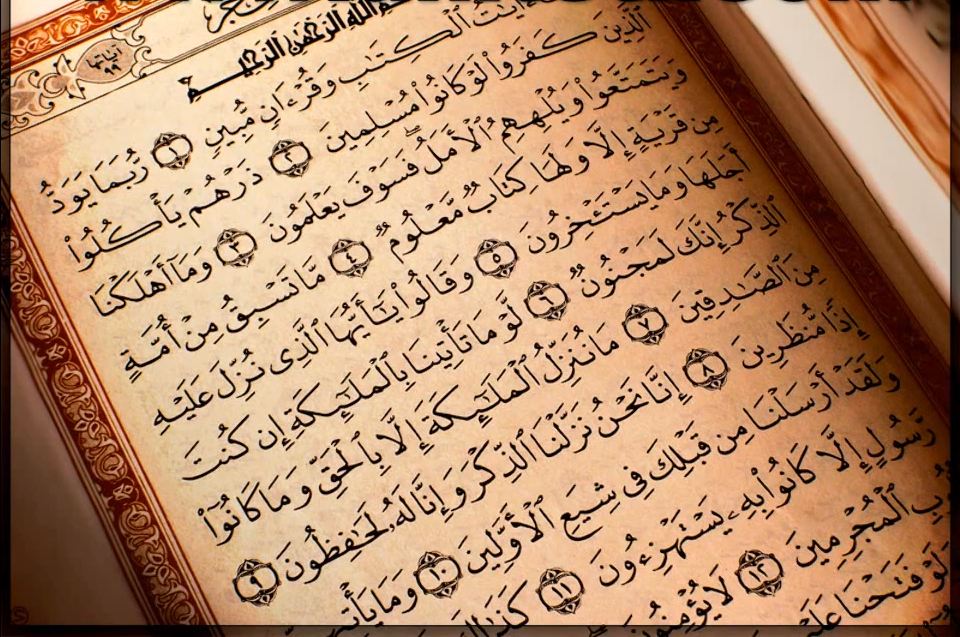 آياتها ٩٩
اللَّهِ الرَّحْمَٰنِ الرَّحِيمِ
ءَايَٰتُ ٱلْكِتَٰبِ وَقُرْءَانٍ مُّبِينٍ ١ رُّبَمَا يَوَدُّ
ٱلَّذِينَ كَفَرُوا۟ لَوْ كَانُوا۟ مُسْلِمِينَ ٢ ذَرْهُمْ يَأْكُلُوا۟
وَيَتَمَتَّعُوا۟ وَيُلْهِهِمُ ٱلْأَمَلُ فَسَوْفَ يَعْلَمُونَ ٣ وَمَآ أَهْلَكْنَا
مِن قَرْيَةٍ إِلَّا وَلَهَا كِتَابٌ مَّعْلُومٌ ٤ مَّا تَسْبِقُ مِنْ أُمَّةٍ
أَجَلَهَا وَمَا يَسْتَـْٔخِرُونَ ٥ وَقَالُوا۟ يَٰٓأَيُّهَا ٱلَّذِى نُزِّلَ عَلَيْهِ
ٱلذِّكْرُ إِنَّكَ لَمَجْنُونٌ ٦ لَّوْ مَا تَأْتِينَا بِٱلْمَلَٰٓئِكَةِ إِن كُنتَ
مِنَ ٱلصَّٰدِقِينَ ٧ مَا نُنَزِّلُ ٱلْمَلَٰٓئِكَةَ إِلَّا بِٱلْحَقِّ وَمَا كَانُوٓا۟
إِذًا مُّنظَرِينَ ٨ إِنَّا نَحْنُ نَزَّلْنَا ٱلذِّكْرَ وَإِنَّا لَهُۥ لَحَٰفِظُونَ ٩
وَلَقَدْ أَرْسَلْنَا مِن قَبْلِكَ فِى شِيَعِ ٱلْأَوَّلِينَ ١٠ وَمَا
رَّسُولٍ إِلَّا كَانُوا۟ بِهِۦ يَسْتَهْزِءُونَ ١١
ٱلْمُجْرِمِينَ ١٢ لَا يُؤْمِنُونَ
فَتَحْنَا